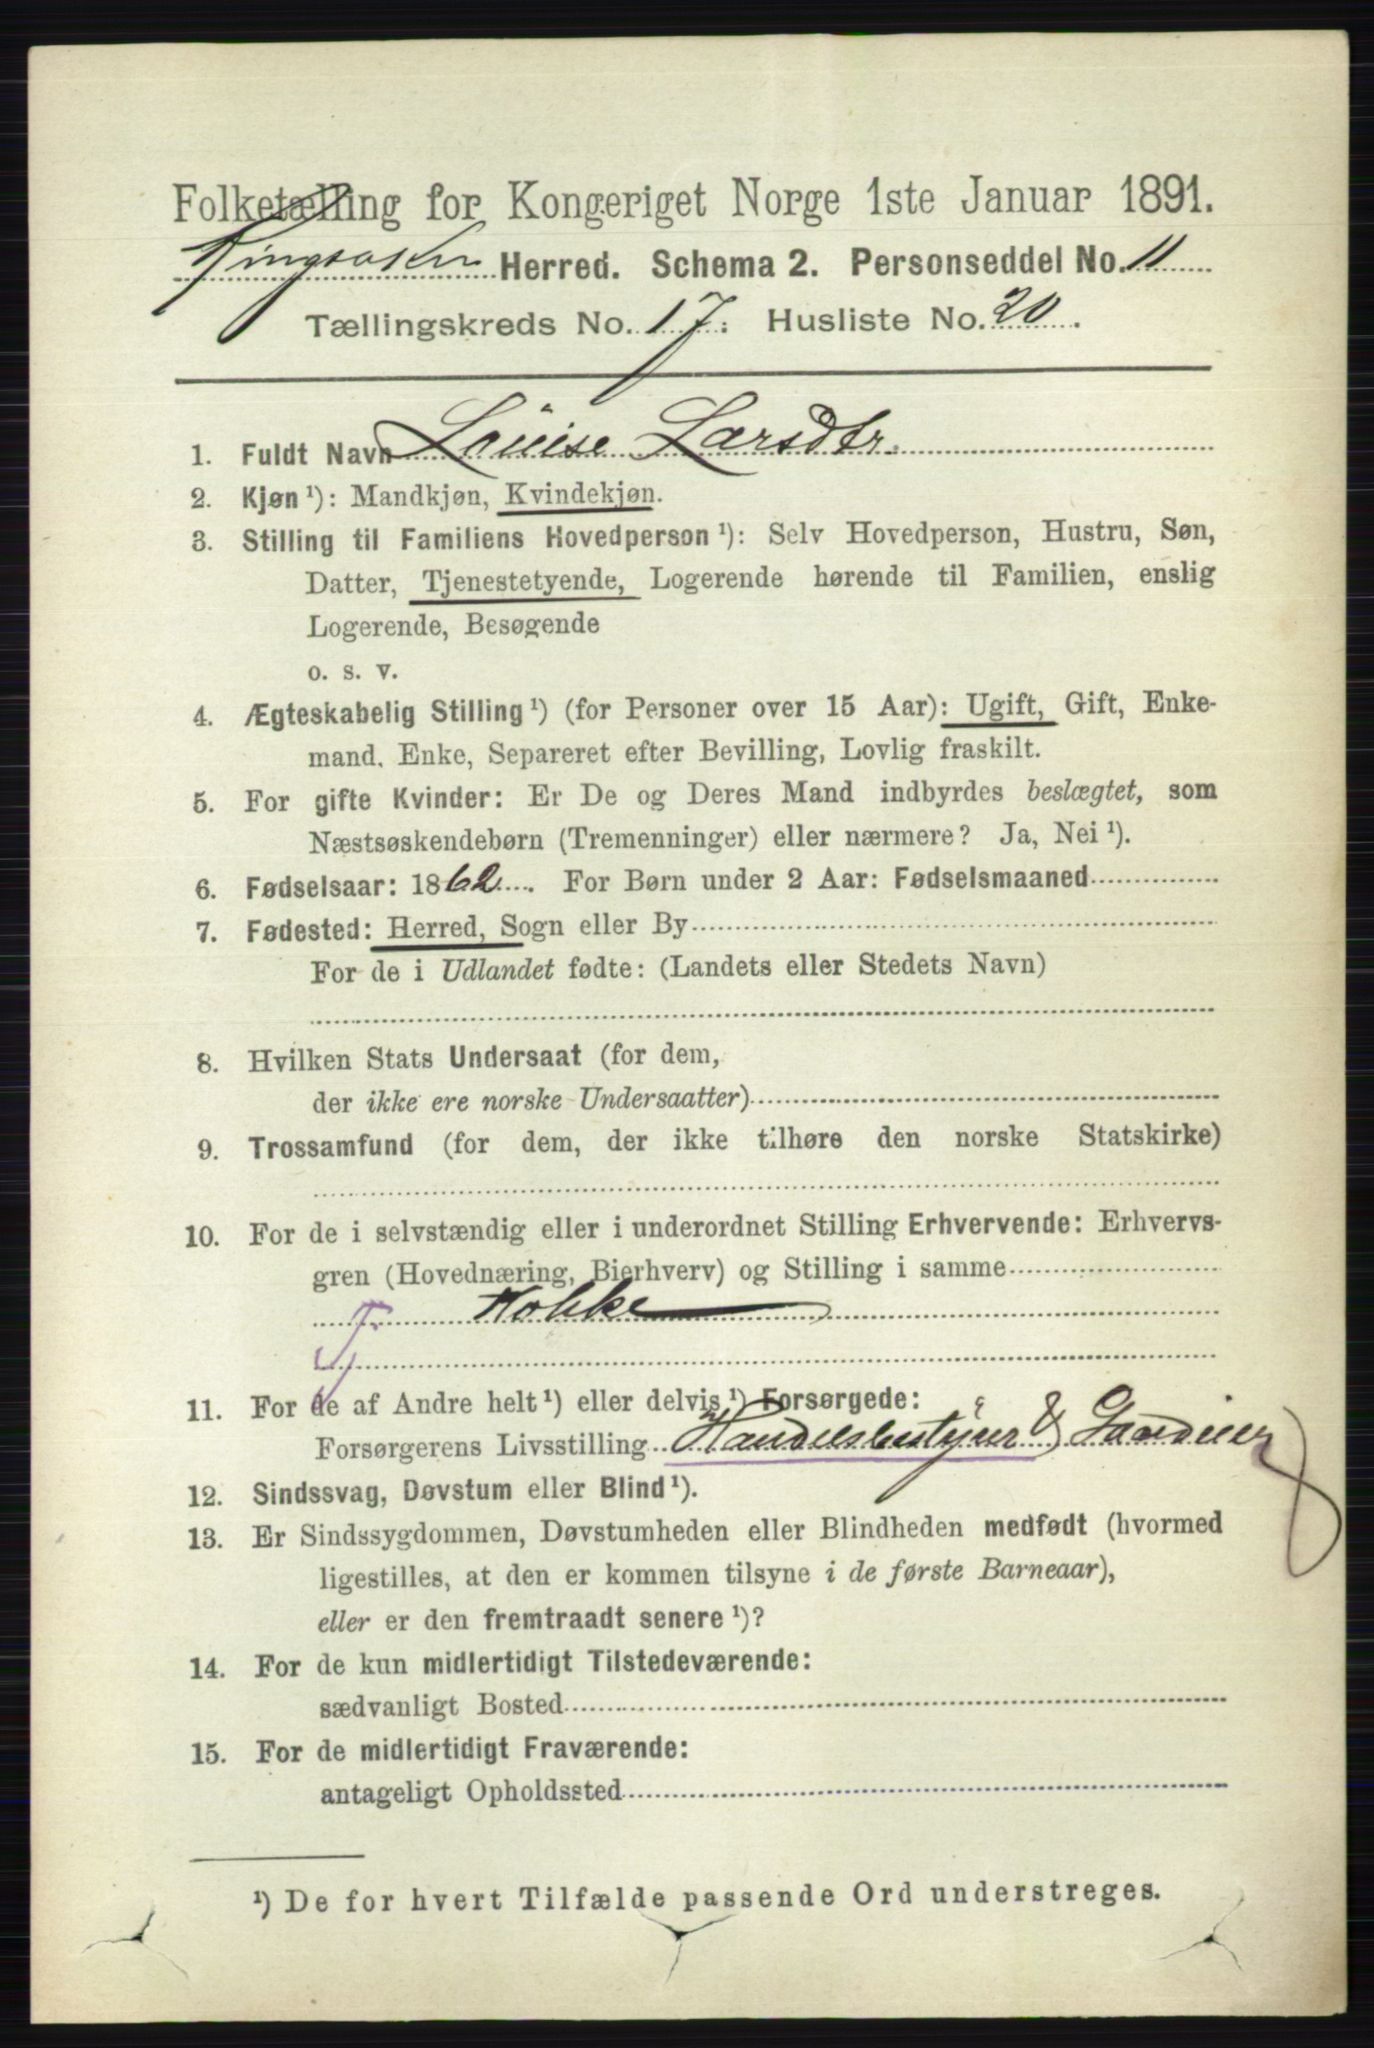 Folketælling for Kongeriget Norge 1ste Januar 1891.
Ringsaker Herred. Schema 2. Personseddel No. 11
Tællingskreds No. 17. Husliste No. 20.
1. Fuldt Navn Louise Larsdtr.
2. Kjøn ¹): Mandkjøn, Kvindekjøn.
3. Stilling til Familiens Hovedperson ¹): Selv Hovedperson, Hustru, Søn,
Datter, Tjenestetyende, Logerende hørende til Familien, enslig
Logerende, Besøgende
o. s. v.
4. Ægteskabelig Stilling ¹) (for Personer over 15 Aar): Ugift, Gift, Enke-
mand, Enke, Separeret efter Bevilling, Lovlig fraskilt.
5. For gifte Kvinder: Er De og Deres Mand indbyrdes beslægtet, som
Næstsøskendebørn (Tremenninger) eller nærmere? Ja, Nei ¹).
6. Fødselsaar: 1862. For Børn under 2 Aar: Fødselsmaaned
7. Fødested: Herred, Sogn eller By
For de i Udlandet fødte: (Landets eller Stedets Navn)
8. Hvilken Stats Undersaat (for dem,
der ikke ere norske Undersaatter)
9. Trossamfund (for dem, der ikke tilhøre den norske Statskirke)
10. For de i selvstændig eller i underordnet Stilling Erhvervende: Erhvervs-
gren (Hovednæring, Bierhverv) og Stilling i samme
Kokke
11. For de af Andre helt ¹) eller delvis ¹) Forsørgede:
Forsørgerens Livsstilling Handelsbestyrer &
12. Sindssvag, Døvstum eller Blind ¹).
13. Er Sindssygdommen, Døvstumheden eller Blindheden medfødt (hvormed
ligestilles, at den er kommen tilsyne i de første Barneaar),
eller er den fremtraadt senere ¹)?
14. For de kun midlertidigt Tilstedeværende:
sædvanligt Bosted
15. For de midlertidigt Fraværende:
antageligt Opholdssted
¹) De for hvert Tilfælde passende Ord understreges.